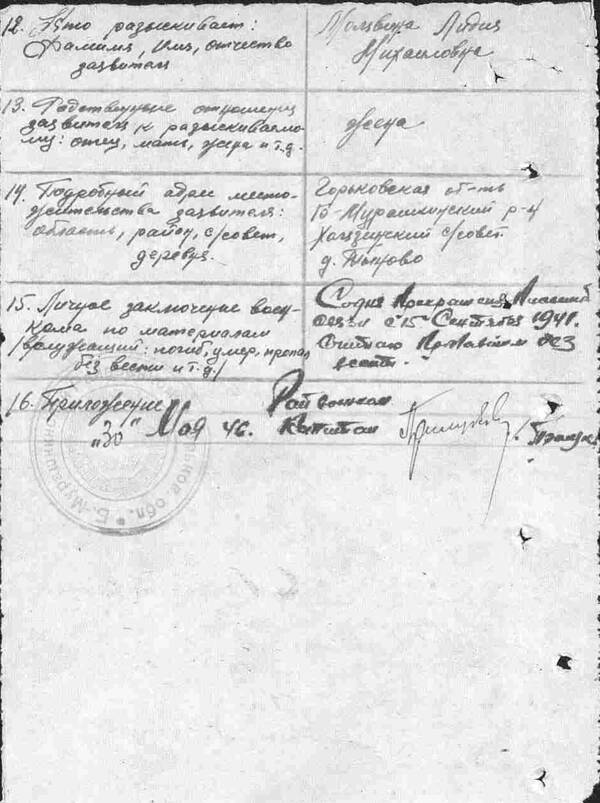 12. Кто разыскивает:
Фамилия, Имя, отчество
заявителя
Лидия
Михайловна
13. Родственные отношения
заявителя к разыскиваемо-
му: отец, мать, жена и т.д.
жена
14. Подробный адрес место-
жительства заявителя:
область, район, с/совет,
деревня.
Горьковская об-ть
Б-Мурашкинский р-н
с/совет
д.
15. Личное заключение воен-
кома по материалам
: погиб, умер, пропал
без вести и т.д./
Прекращения
связи с 15 Сентября 1941г.
Считаю Пропавшим без
вести.
16. Приложение
"30" Мая 46.
Райвоенком
Капитан